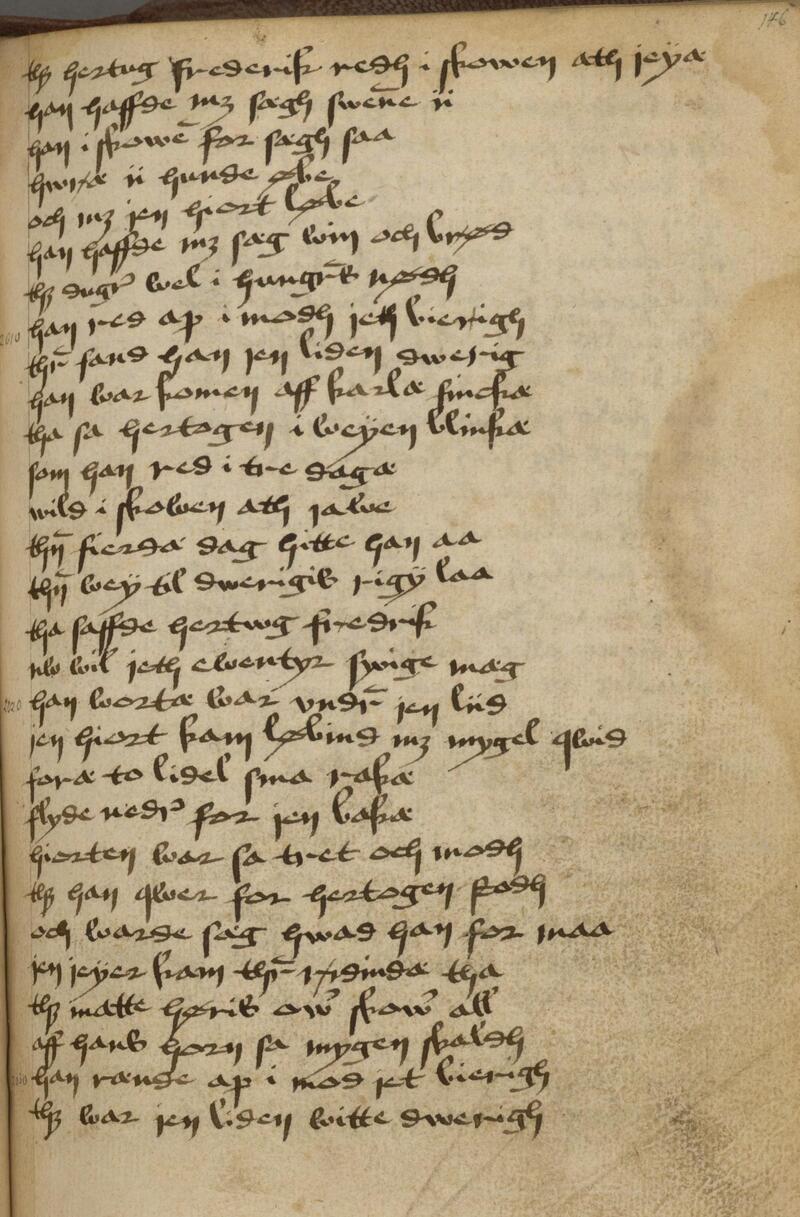 146
thz hertug frederik redh i skowen ath jeyæ
han haffde mz sægh swene ii
han i skowe for sægh saa
hwræ ii hunde øbe
och mz jen hiort løbe
han haffde mz sæg win och brød
thz dugr wel i hungrs nødh
2010 han red ap i modh jeth bierigh
thr fand han jen liden dwerig
han war komen aff karlæ sinckæ
tha sa hertogen i weyen blinkæ
som han red i tre dagæ
wild i skowen ath jawe
thn fierdæ dag hitte han aa
thn wey til dwerigis rigy laa
tha saffde hertwg fredrik
nw wil jeth ewentyr swige mæg
2020 han wortæ war vndr jen liid
jen hiort kam løbind mz mygel qwid
foræ to lidel sma rakæ
flyde nedr for jen bakæ
hiorten war sa tret och modh
thz han qwer for hertogen stodh
och warde sæg hwad han for maa
jen jeyer kam thr rydindæ tha
thz matte høris ow skow all
aff hans horn sa mygen skaldh
2030 han rænde ap i mod jet bierigh
thz war jen liden witte dwerigh